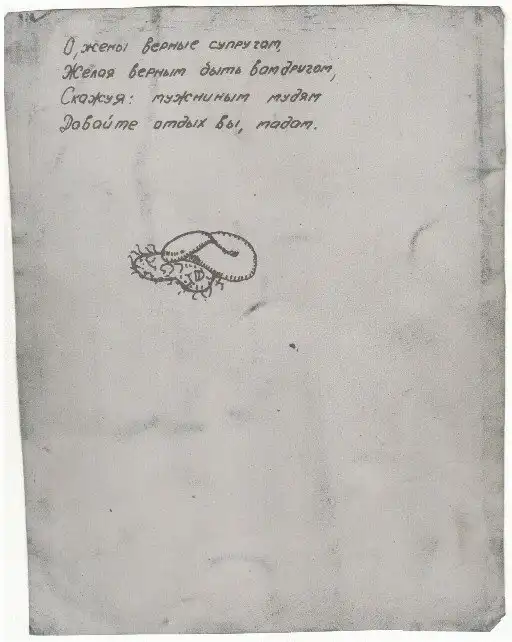 О, жены верные супругам,
Желая верным быть вам другом,
Скажу я: мужниным мудям
Давайте отдых вы, мадам.